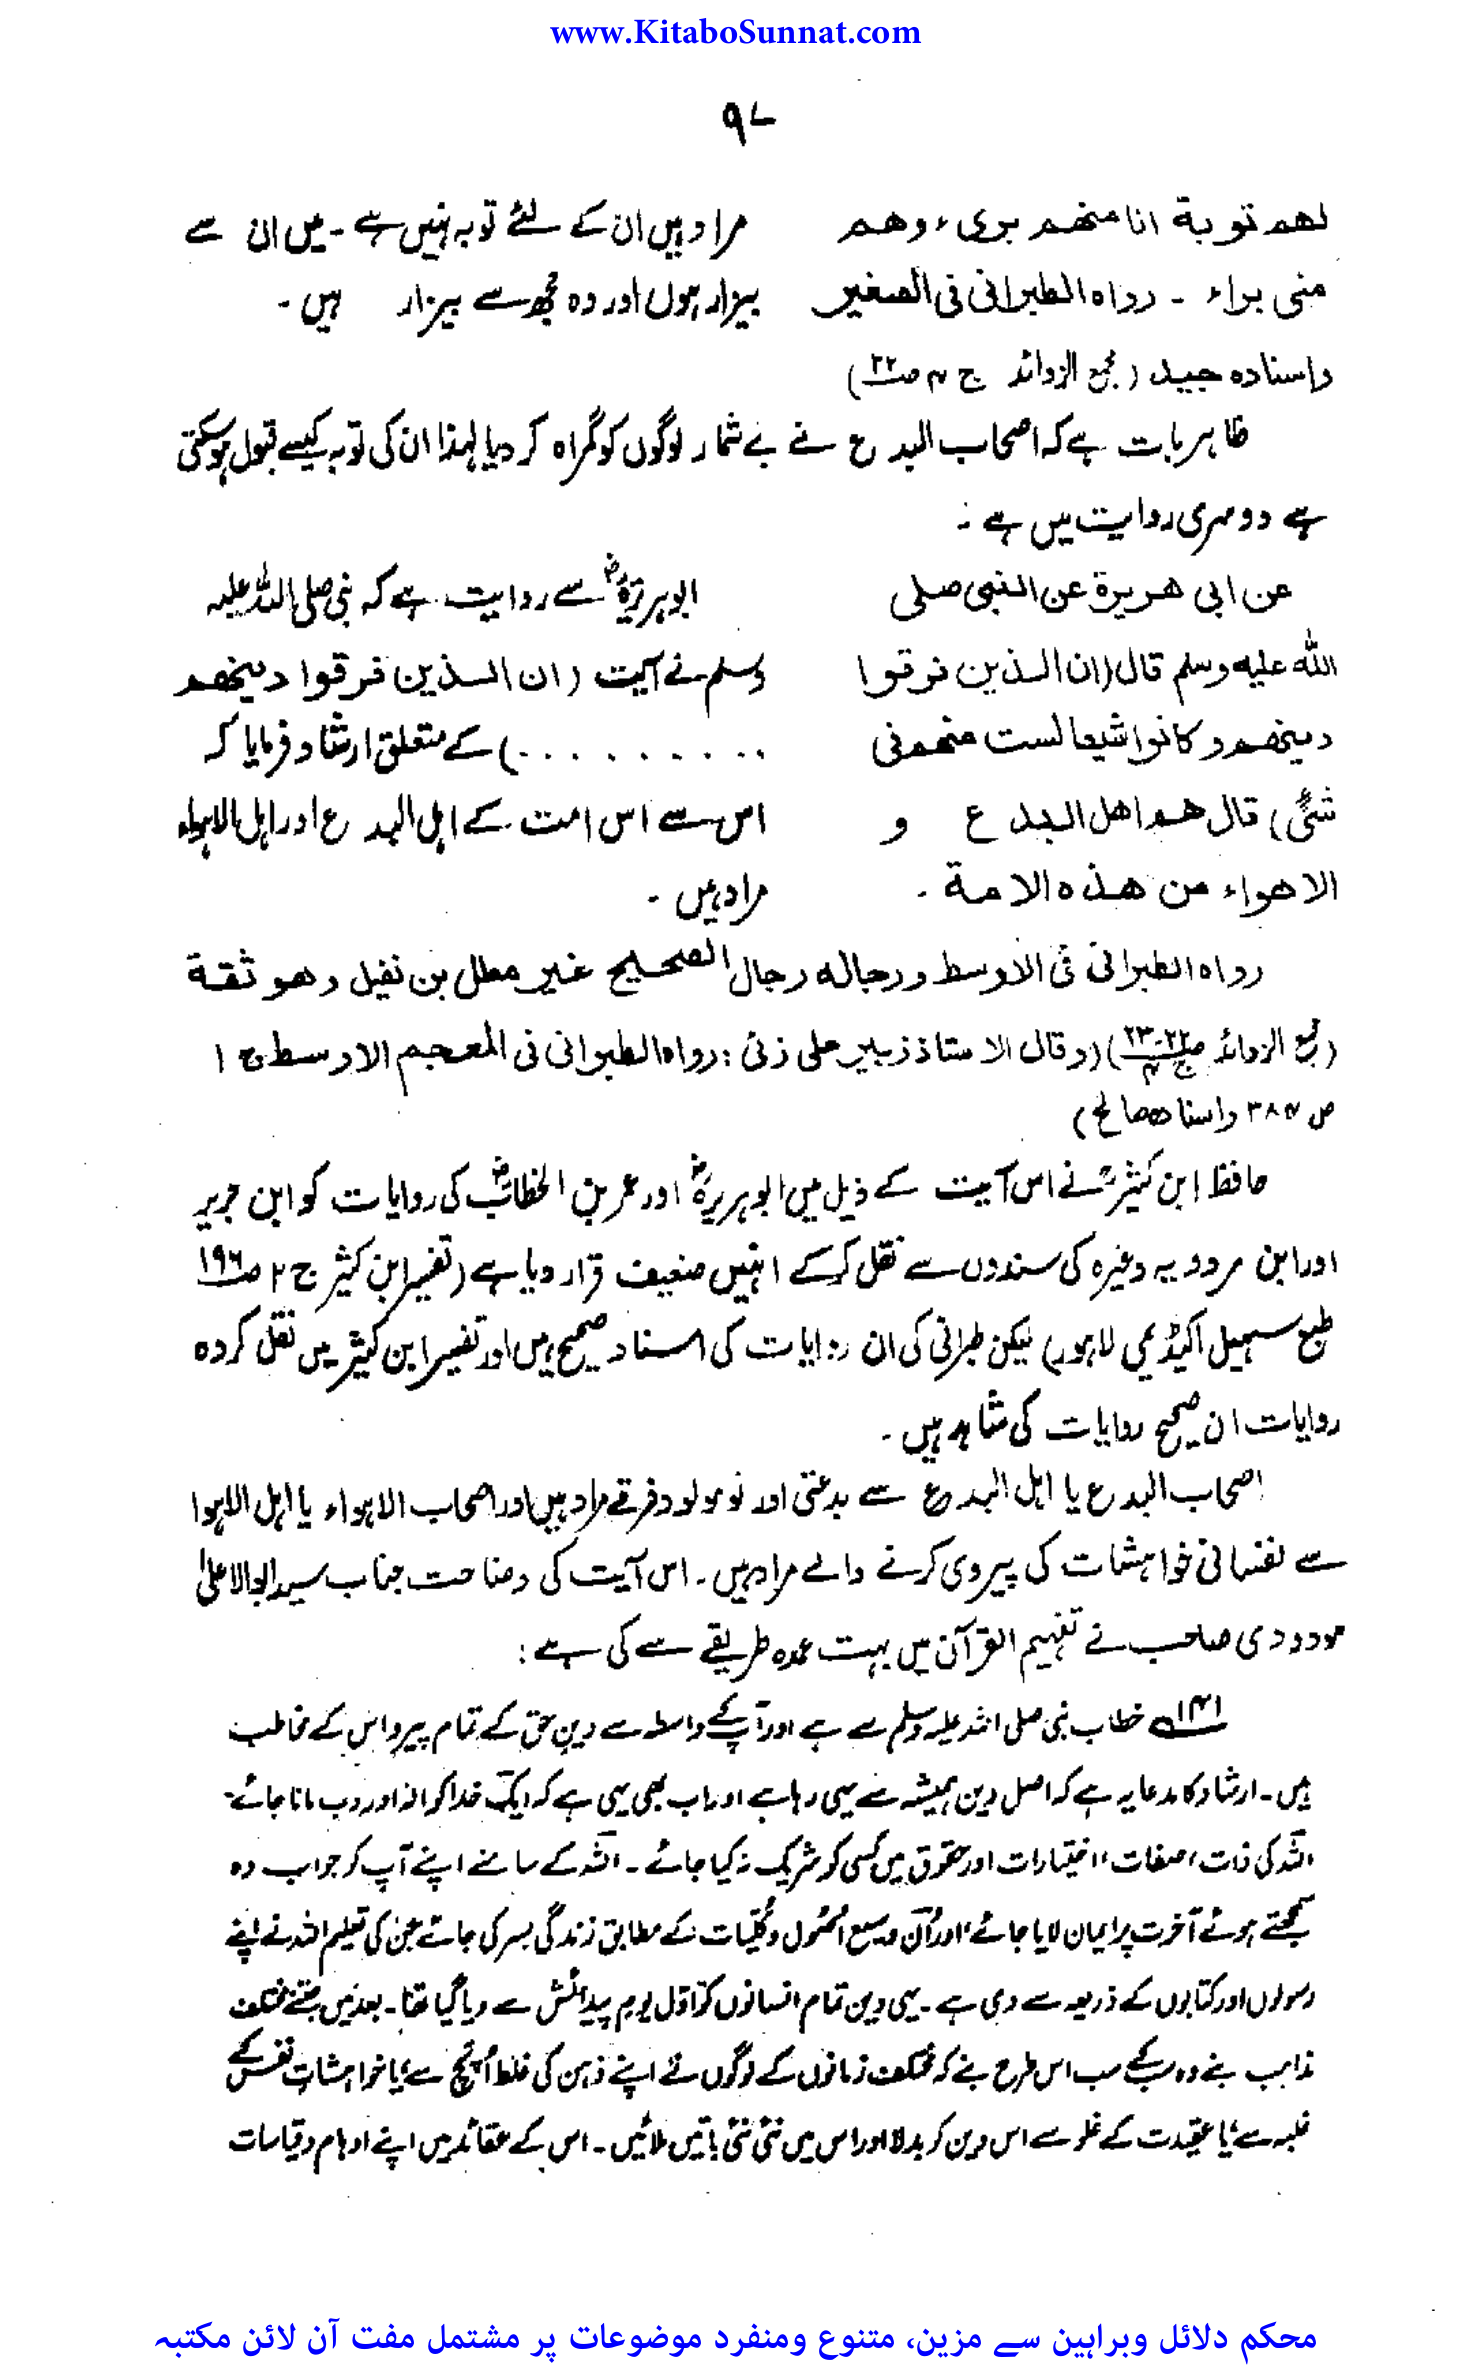 www.KitaboSunnat.com
۹۷
لهم توبة انا منهم بریء وهم
منی براء - رواه الطبرانی فی الصغیر
واسناده جید (مجمع الزوائد ج ۷ ص۲۲)
مراد ہیں ان کے لئے توبہ نہیں ہے - میں ان سے
بیزار ہوں اور وہ مجھ سے بیزار ہیں -
ظاہر بات ہے کہ اصحاب البدع نے بے شمار لوگوں کو گمراہ کر دیا لہذا ان کی توبہ کیسے قبول ہوسکتی
ہے دوسری روایت میں ہے :
عن ابی هریرة عن النبی صلی
الله علیه وسلم قال (ان الذین فرقوا
دینهم وکانوا شیعا لست منهم فی
شئ) قال هم اهل البدع و
الاهواء من هذه الامة -
ابوہریرہؓ سے روایت ہے کہ نبی صلی اللہ علیہ
وسلم نے آیت (ان الذین فرقوا دینهم
.........) کے متعلق ارشاد فرمایا کہ
اس سے اس امت کے اہل البدع اور اہل الاہواء
مراد ہیں -
رواه الطبرانی فی الاوسط ورجاله رجال الصحیح غیر معلل بن نفیل وهو ثقة
(مجمع الزوائد ص۲۲-۲۳ ج۷) (وقال الاستاذ زبیر علی زئی : رواه الطبرانی فی المعجم الاوسط ج ۱
ص ۳۸۴ واسناده صالح)
حافظ ابن کثیرؒ نے اس آیت کے ذیل میں ابوہریرہؓ اور عمر بن الخطابؓ کی روایات کو ابن جریر
اور ابن مردویہ وغیرہ کی سندوں سے نقل کرکے انہیں ضعیف قرار دیا ہے (تفسیر ابن کثیر ج ۲ ص۱۹۶
طبع سہیل اکیڈیمی لاہور) لیکن طبرانی کی ان روایات کی اسناد صحیح ہیں اور تفسیر ابن کثیر میں نقل کردہ
روایات ان صحیح روایات کی شاہد ہیں -
اصحاب البدع یا اہل البدع سے بدعتی اور نومولود فرقے مراد ہیں اور اصحاب الاہواء یا اہل الاہوا
سے نفسانی خواہشات کی پیروی کرنے والے مراد ہیں - اس آیت کی وضاحت جناب سید ابوالاعلیٰ
مودودی صاحب نے تفہیم القرآن میں بہت عمدہ طریقے سے کی ہے :
۱۴۱ خطاب نبی صلی اللہ علیہ وسلم سے ہے اور آپ کے واسطہ سے دین حق کے تمام پیرو اس کے مخاطب
ہیں - ارشاد کا مدعا یہ ہے کہ اصل دین ہمیشہ سے یہی رہا ہے اور اب بھی یہی ہے کہ ایک خدا کو الٰہ اور رب مانا جائے -
اللہ کی ذات، صفات، اختیارات اور حقوق میں کسی کو شریک نہ کیا جائے - اللہ کے سامنے اپنے آپ کو جواب دہ
سمجھتے ہوئے آخرت پر ایمان لایا جائے، اور اُن وسیع اُصُول و کُلّیات کے مطابق زندگی بسر کی جائے جن کی تعلیم اللہ نے اپنے
رسولوں اور کتابوں کے ذریعہ سے دی ہے - یہی دین تمام انسانوں کو اوّل یوم پیدائش سے دیا گیا تھا - بعد میں جتنے مختلف
مذاہب بنے وہ سب کے سب اس طرح بنے کہ مختلف زمانوں کے لوگوں نے اپنے ذہن کی غلط اُپج سے، یا خواہشاتِ نفس کے
غلبہ سے، یا عقیدت کے غلو سے اس دین کو بدلا اور اس میں نئی نئی باتیں ملائیں - اس کے عقائد میں اپنے اوہام و قیاسات
محکم دلائل وبراہین سے مزین، متنوع ومنفرد موضوعات پر مشتمل مفت آن لائن مکتبہ